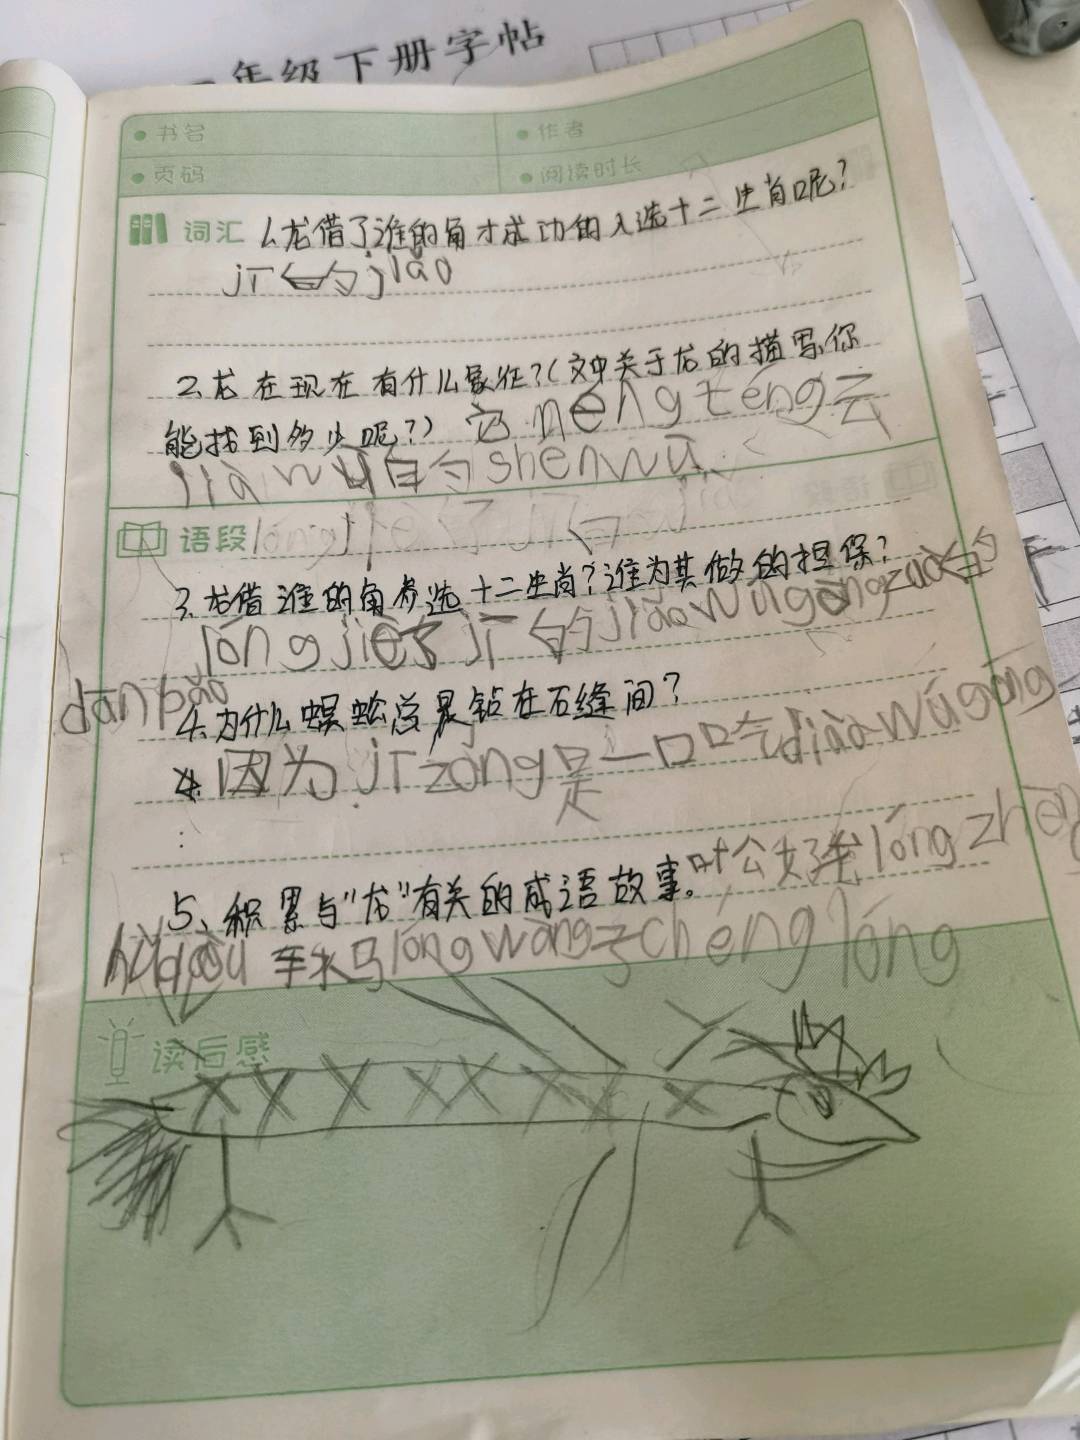 年级下册字帖
书名
作者
页码
阅读时长
词汇 1.龙借了谁的角才成功的入选十二生肖呢?
jī的jiǎo
2.龙在现在有什么象征?(文中关于龙的描写你
能找到多少呢?) 它néngténg云
jià wù的shénwù
语段 lóngjiè了jī的jiǎo
3.龙借谁的角参选十二生肖?谁为其做的担保?
lóng jiè了jī的jiǎo wúgōngzuò的
dānbǎo
4.为什么蜈蚣总是钻在石缝间?
4.因为jī zǒng是一口吃diào wúgōng
5、积累与"龙"有关的成语故事。叶公好lóng zhēn
车水马lóng wàng子chénglóng
读后感